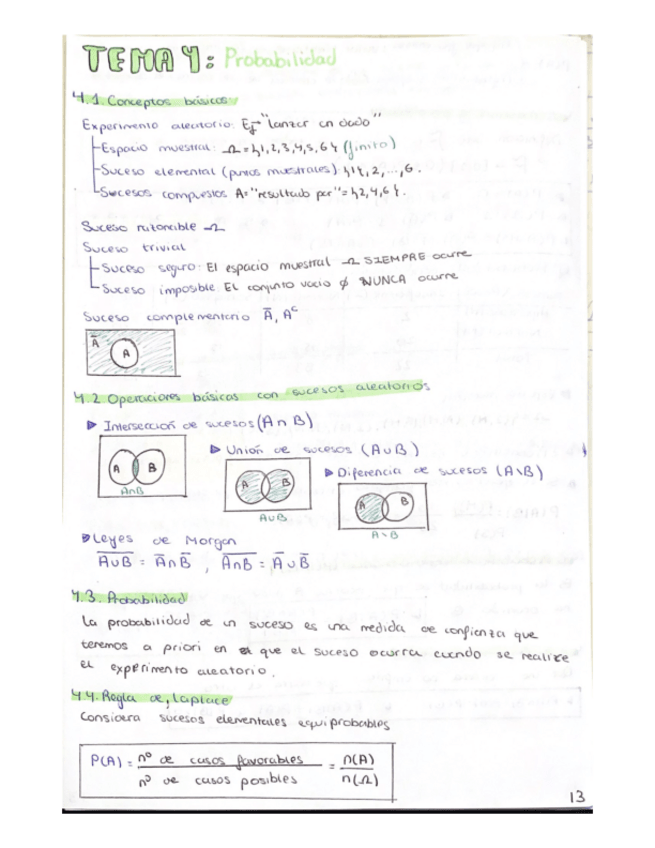 TEMA 4: Probabilidad
4.1 Conceptos básicos:
Experimento aleatorio: Ej "Lanzar un dado"
Espacio muestral: Ω = {1,2,3,4,5,6} (finito)
Suceso elemental (puntos muestrales) {1}, 2, ..., 6.
Sucesos compuestos A = "resultado par" = {2,4,6}.
Suceso Ω
Suceso trivial
Suceso seguro: El espacio muestral Ω SIEMPRE ocurre
Suceso imposible: El conjunto vacío ∅ NUNCA ocurre
Suceso complementario Ā, Aᶜ
Ā
A
4.2 Operaciones básicas con sucesos aleatorios
▶ Intersección de sucesos (A∩B)
A B
A∩B
▶ Unión de sucesos (A∪B)
A B
A∪B
▶ Diferencia de sucesos (A\B)
A B
A\B
▶ Leyes de Morgan
A̅∪̅B̅ = Ā∩B̅ , A̅∩̅B̅ = Ā∪B̅
4.3. Probabilidad
La probabilidad de un suceso es una medida de confianza que
tenemos a priori en que el suceso ocurra cuando se realice
el experimento aleatorio.
4.4. Regla de Laplace
Considera sucesos elementales equiprobables
P(A) = nº de casos favorables / nº de casos posibles = n(A) / n(Ω)
13